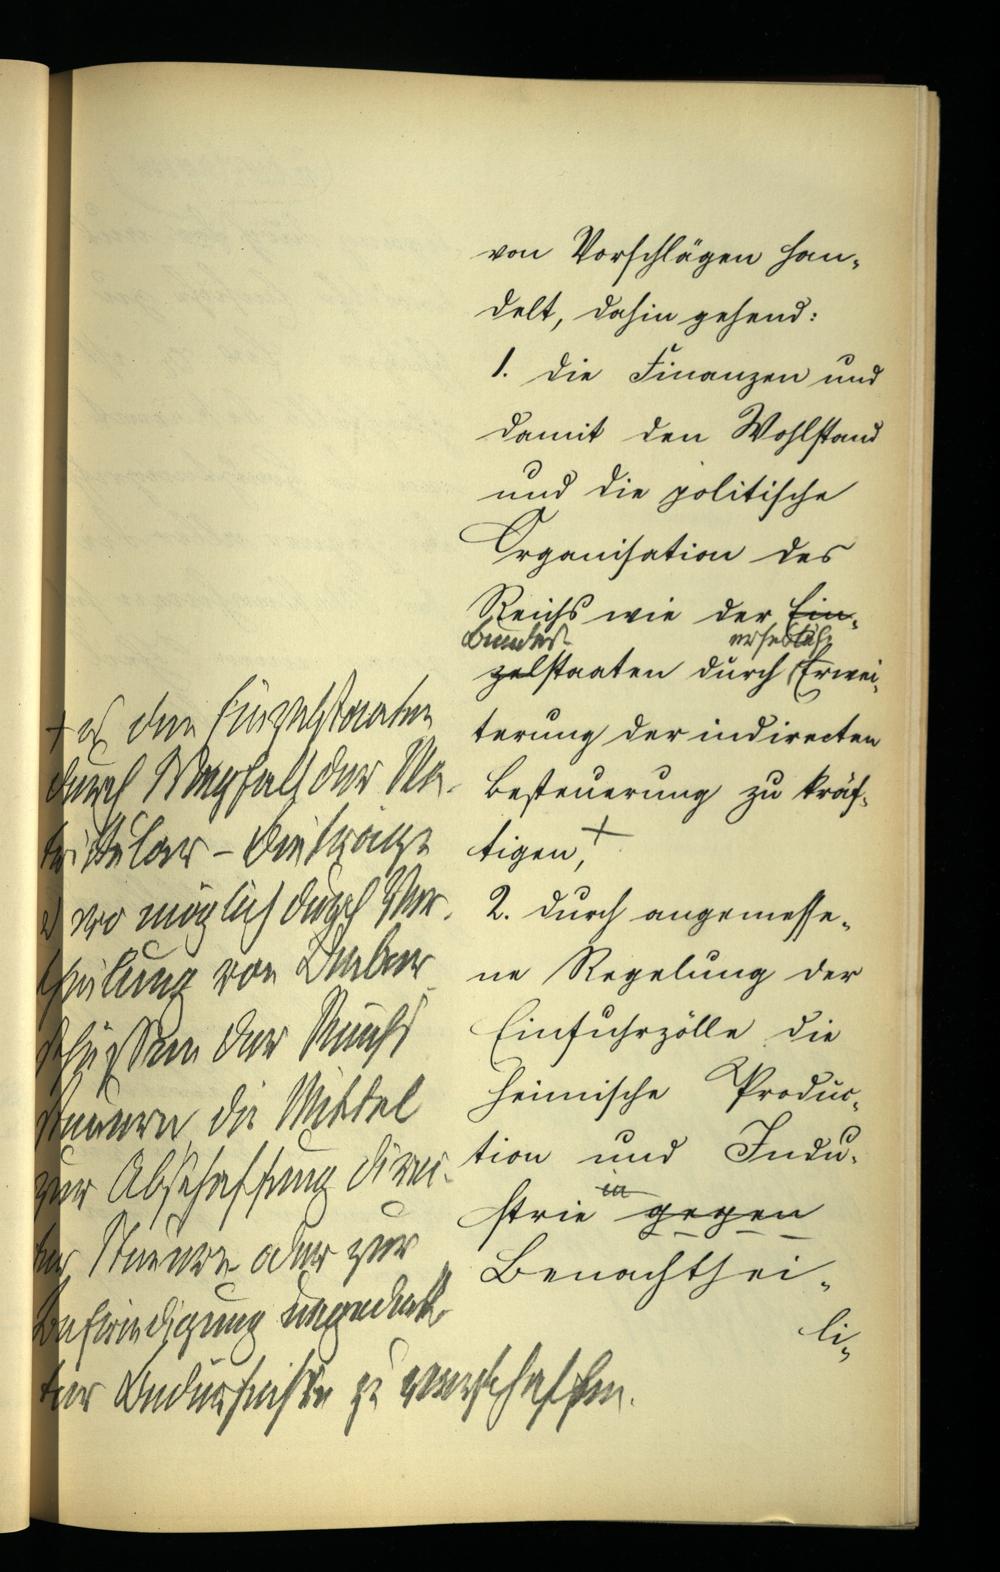 von Vorschlägen han-
delt, dahin gehend:
1. die Finanzen und
damit den Wohlstand
und die politische
Organisation des
Reichs wie der Ein-
Bundes- erhebliche
zelstaaten durch Erwei-
terung der indirecten
Besteuerung zu kräf-
tigen, +
2. durch angemesse-
ne Regelung der
Einfuhrzölle die
heimische Produc-
tion und Indu-
in
strie gegen
Benachthei-
li-
+ den Einzelstaaten
durch Wegfall der Ma-
trikular-Beiträge
wo möglich durch Ver-
theilung von Ueber-
schüssen der Reichs
steuern die Mittel
zur Abschaffung direc-
ter Steuern oder zur
Befriedigung ungedeck-
ter Bedürfnisse zu verschaffen.